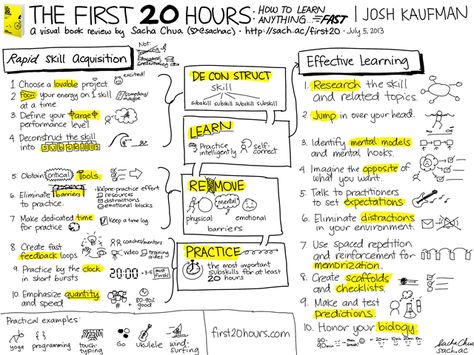 THE FIRST 20 HOURS: HOW TO LEARN ANYTHING... FAST | JOSH KAUFMAN
a visual book review by Sacha Chua (@sachac) • http://sach.ac/first20 • July 5, 2013
Rapid Skill Acquisition
1 Choose a lovable project
excited!
2 Focus your energy on 1 skill at a time
3 Define your target performance level
4 Deconstruct the skill into subskills
5 Obtain critical tools
6 Eliminate barriers to practice.
practice effort
resources
distractions
emotional blocks
7 Make dedicated time for practice
Keep a time log
8 Create fast feedback loops
coaches/mentors
video
9 Practice by the clock in short bursts
20:00
3-5 times
Must finish!
10 Emphasize quantity and speed
good
DECONSTRUCT
Skill
subskill subskill subskill subskill
LEARN
Practice intelligently
self-correct
REMOVE
physical
mental
emotional
barriers
PRACTICE
the most important subskills for at least 20 HOURS
Effective Learning
1. Research the skill and related topics.
2. Jump in over your head.
3. Identify mental models and mental hooks.
4. Imagine the opposite of what you want.
5. Talk to practitioners to set expectations
6. Eliminate distractions in your environment.
7. Use spaced repetition and reinforcement for memorization.
8. Create scaffolds and checklists
9. Make and test predictions.
10. Honor your biology.
Practical examples:
yoga
programming
touch-typing
Go
ukulele
wind-surfing
first20hours.com
Sacha Chua
sach.ac